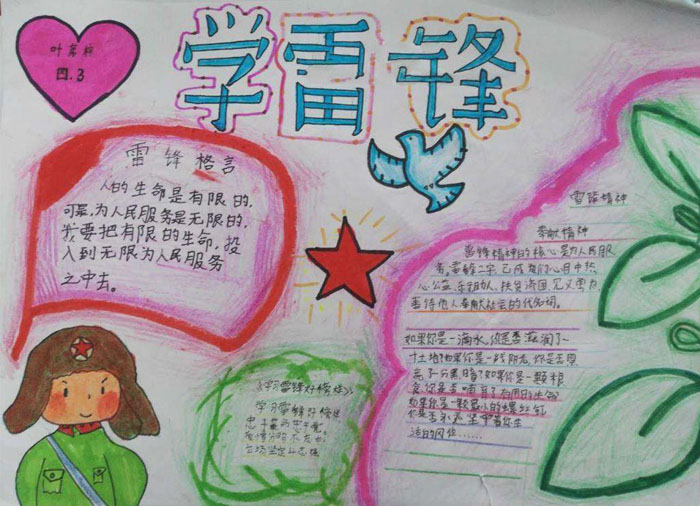 叶
四.3
学雷锋
雷锋格言
人的生命是有限的,
可是,为人民服务是无限的,
我要把有限的生命,投
入到无限为人民服务
之中去。
雷锋精神
奉献精神
雷锋精神的核心是为人民服
务,雷锋二字,已成为们心目中热
心公益,乐于助人,扶贫济困,见义勇为
善待他人奉献社会的代名词。
如果你是一滴水,你是否滋润了一
寸土地?如果你是一线阳光,你是否照
亮了一分黑暗?如果你是一颗粮
食,你是否哺育了有用的生命
如果你是一颗最小的螺丝钉
你是否永远坚守着你生
活的岗位......
《学习雷锋好榜样》
学习雷锋好榜样
忠于革命忠于党
爱憎分明不忘本
立场坚定斗志强